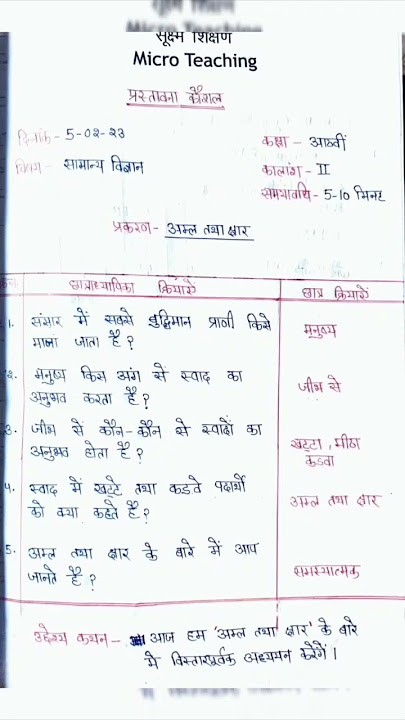 सूक्ष्म शिक्षण
Micro Teaching
प्रस्तावना कौशल
दिनांक - 5-02-23
कक्षा - आठवीं
विषय - सामान्य विज्ञान
कालांश - II
समयावधि - 5-10 मिनट
प्रकरण - अम्ल तथा क्षार
छात्राध्यापिका क्रियाएँ
छात्र क्रियाएँ
1. संसार में सबसे बुद्धिमान प्राणी किसे
माना जाता है ?
मनुष्य
2. मनुष्य किस अंग से स्वाद का
अनुभव करता है ?
जीभ से
3. जीभ से कौन-कौन से स्वादों का
अनुभव होता है ?
खट्टा, मीठा
कडवा
4. स्वाद में खट्टे तथा कडवे पदार्थों
को क्या कहते है ?
अम्ल तथा क्षार
5. अम्ल तथा क्षार के बारे में आप
जानते है ?
समस्यात्मक
उद्देश्य कथन - आज हम 'अम्ल तथा क्षार' के बारे
मे विस्तारपूर्वक अध्ययन करेंगें ।